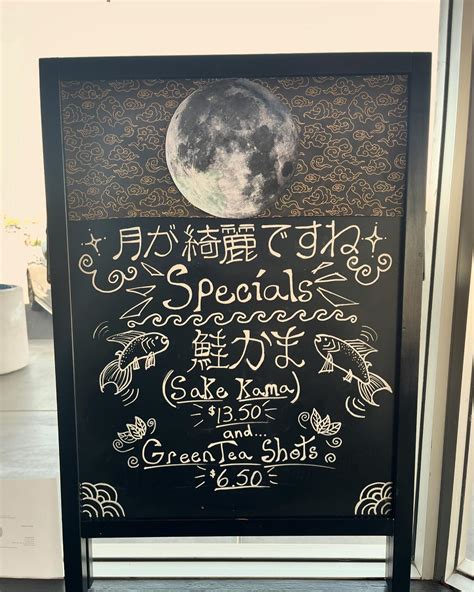 月が綺麗ですね
Specials
鮭かま
(Sake Kama)
$13.50
and...
Green Tea Shots
$6.50